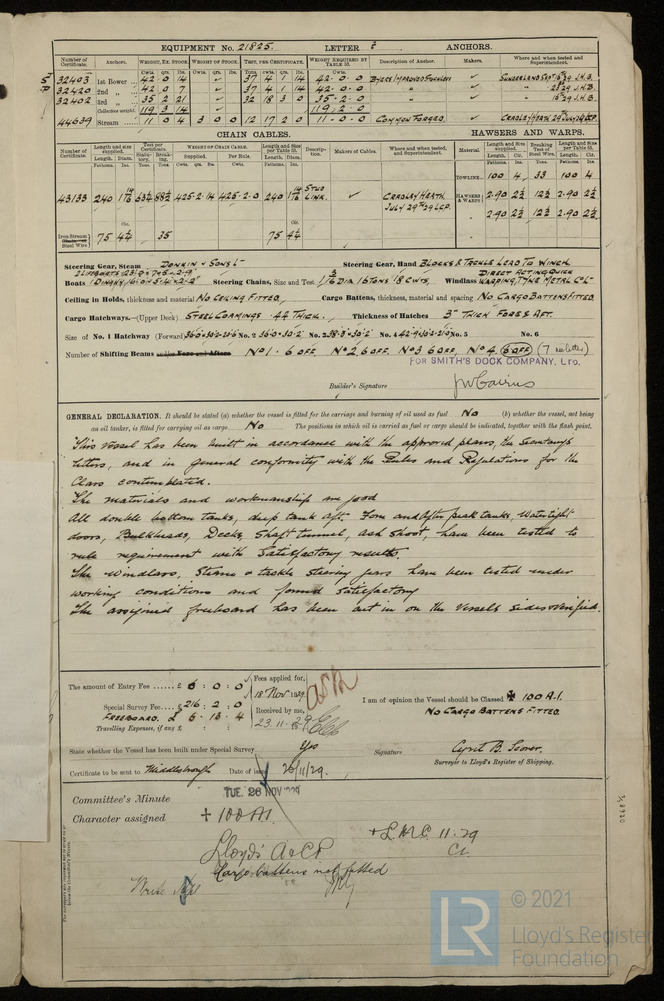 EQUIPMENT No. 21825. LETTER ANCHORS.
Number of Certificate. Anchors. WEIGHT, EX. STOCK. WEIGHT OF STOCK. TEST, PER CERTIFICATE. WEIGHT REQUIRED BY TABLE 53. Description of Anchor. Makers. Where and when tested and Superintendent.
Cwts. qrs. lbs. Cwts. qrs. lbs. Tons. cwts. qrs. lbs. Cwts.
32403 1st Bower 42 0 14 37 4 1 14 42. 0. 0 BYERS IMPROVED STOCKLESS SUNDERLAND SEPT 16 29 J.H.B.
32420 2nd „ 42 0 7 37 4 1 14 42. 0. 0 23 29 J.H.B.
32402 3rd „ 35 2 21 32 18 3 0 35. 2. 0 16 29 J.H.B.
Collective weight. 119 3 14 119 2 0
44639 Stream 11 0 4 3 0 0 12 17 2 0 11. 0. 0 COMMON FORGED. CRADLEY HEATH 29 JULY 29 LCP.
CHAIN CABLES. HAWSERS AND WARPS.
Number of Certificate. Length and size supplied. Test per Certificate. WEIGHT OF CHAIN CABLE. Length and size per Table 53. Description. Makers of Cables. Where and when tested, and Superintendent. Material Length and Size supplied. Breaking Test of Steel Wire. Length and Size per Table 53.
Supplied. Per Rule.
TOWLINE 100 4 33 100 4
43133 240 425. 2. 14 425. 2. 0 240 STUD LINK. CRADLEY HEATH JULY 29TH 29 LCP. HAWSERS & WARPS 2.90 2½ 12½ 2.90 2½
2.90 2½ 12½ 2.90 2½
Iron Stream Steel Wire 75 4¼ 35 75 4¼
Steering Gear, Steam DONKIN & SONS LD Steering Gear, Hand BLOCKS & TACKLE LEAD TO WINCH
Boats Steering Chains, Size and Test 1 3/16 DIA 16 TONS 18 CWTS, Windlass DIRECT ACTING QUICK WARPING, TYNE METAL CO LD
Ceiling in Holds, thickness and material NO CEILING FITTED. Cargo Battens, thickness, material and spacing NO CARGO BATTENS FITTED.
Cargo Hatchways.—(Upper Deck) STEEL COAMINGS .44 THICK. Thickness of Hatches 3" THICK FORE & AFT.
Size of No. 1 Hatchway (Forward) No. 2 36.0 × 30.2 No. 3 38.3 × 30.2 No. 4 No. 5 No. 6
Number of Shifting Beams and/or Fore and Afters NO 1. 6 OFF, NO 2 6 OFF, NO 3 6 OFF, NO 4. 6 OFF (7
FOR SMITH'S DOCK COMPANY, LTD.
Builder's Signature
GENERAL DECLARATION. It should be stated (a) whether the vessel is fitted for the carriage and burning of oil used as fuel No (b) whether the vessel, not being
an oil tanker, is fitted for carrying oil as cargo No The positions in which oil is carried as fuel or cargo should be indicated, together with the flash point.
This vessel has been built in accordance with the approved plans, the Secretarys
letters, and in general conformity with the Rules and Regulations for the
Class contemplated.
The materials and workmanship are good
All double bottom tanks, deep tank aft. Fore and After peak tanks, Watertight
doors, Bulkheads, Decks, Shaft tunnel, ash shoot, have been tested to
rule requirement with satisfactory results.
The windlass, steam & tackle steering gears have been tested under
working conditions and found satisfactory
The assigned freeboard has been cut in on the vessels sides & verified.
The amount of Entry Fee £ 6 : 0 : 0 Fees applied for,
18 Nov. 1929
Special Survey Fee £216 : 2 : 0
FREEBOARD. £ 6 . 13 . 4 Received by me,
Travelling Expenses, if any £ : : 23. 11. 29
I am of opinion the Vessel should be Classed ✠ 100 A.1.
NO CARGO BATTENS FITTED.
State whether the Vessel has been built under Special Survey Yes Signature
Surveyor to Lloyd's Register of Shipping.
Certificate to be sent to Middlesbrough Date of issue 26/11/29.
Committee's Minute TUE. 26 NOV 1929
Character assigned + 100 A1.
+ L.M.C. 11.29
Lloyd's A & CP
Cargo battens not fitted
© 2021
LR
Lloyd's Register
Foundation